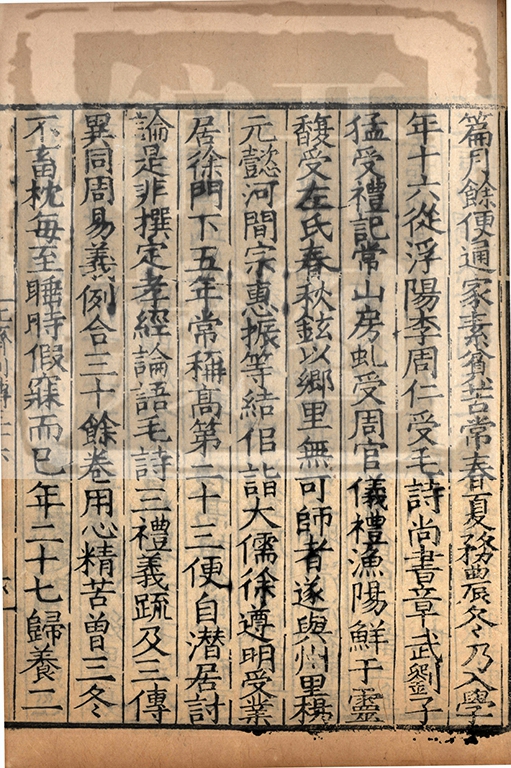 篇月餘便通家素貧苦常春夏務農冬乃入學
年十六從浮陽李周仁受毛詩尚書章武劉子
猛受禮記常山房虬受周官儀禮漁陽鮮于靈
馥受左氏春秋鉉以鄉里無可師者遂與州里楊
元懿河間宗惠振等結侶詣大儒徐遵明受業
居徐門下五年常稱高第二十三便自潛居討
論是非撰定孝經論語毛詩三禮義疏及三傳
異同周易義例合三十餘卷用心精苦曾三冬
不畜枕每至睡時假寐而已年二十七歸養二